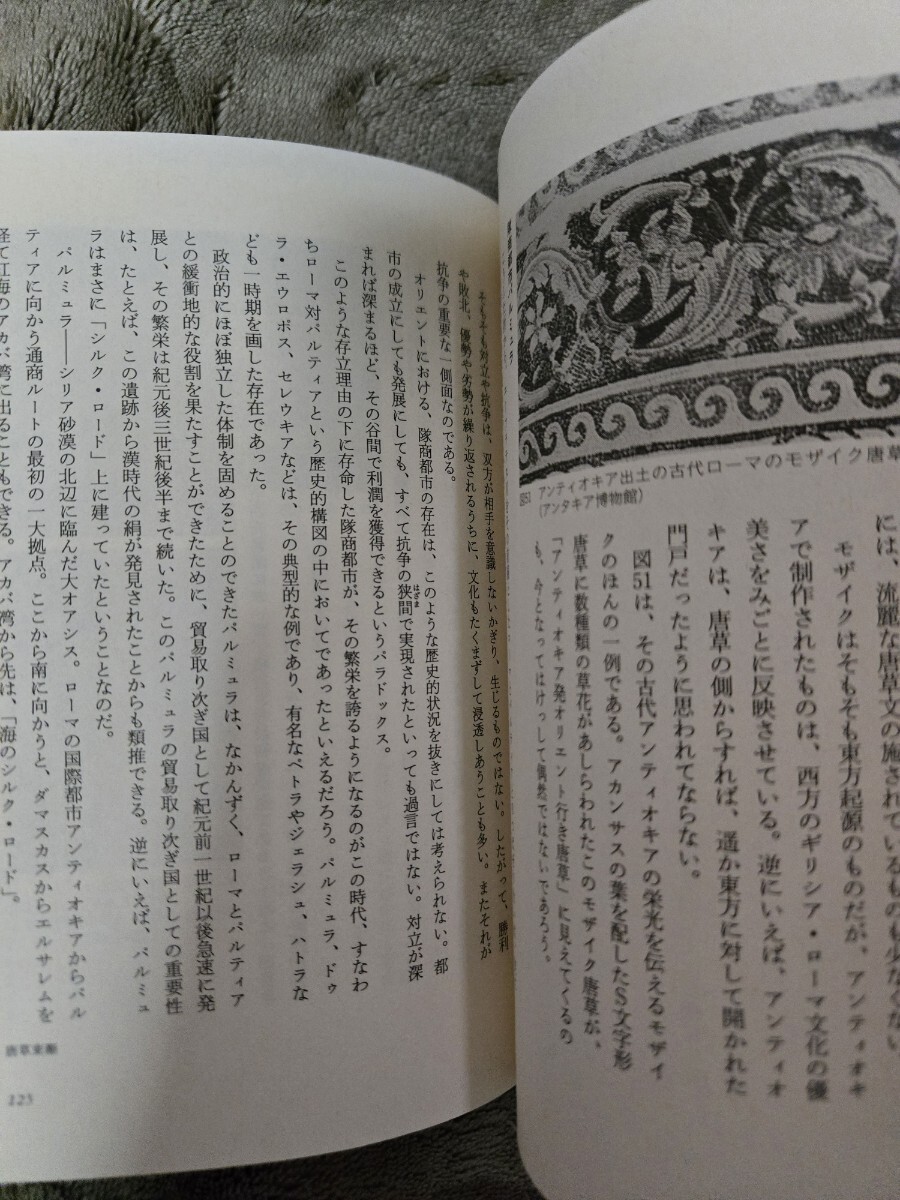 には、流麗な唐草文の施されているものも少なくない。
モザイクはそもそも東方起源のものだが、アンティオキ
アで制作されたものは、西方のギリシア・ローマ文化の優
美さをみごとに反映させている。逆にいえば、アンティオ
キアは、唐草の側からすれば、遥か東方に対して開かれた
門戸だったように思われてならない。
図51は、その古代アンティオキアの栄光を伝えるモザイ
クのほんの一例である。アカンサスの葉を配したS文字形
唐草に数種類の草花があしらわれたこのモザイク唐草が、
「アンティオキア発オリエント行き唐草」に見えてくるの
も、今となってはけっして偶然ではないであろう。
図51 アンティオキア出土の古代ローマのモザイク唐草
(アンタキア博物館)
隊商都市パルミュラ
そもそも対立や抗争は、双方が相手を意識しないかぎり、生じるものではない。したがって、勝利
や敗北、優勢や劣勢が繰り返されるうちに、文化もたくまずして浸透しあうことも多い。またそれが
抗争の重要な一側面なのである。
オリエントにおける、隊商都市の存在は、このような歴史的状況を抜きにしては考えられない。都
市の成立にしても発展にしても、すべて抗争の狭間で実現されたといっても過言ではない。対立が深
はざま
まれば深まるほど、その谷間で利潤を獲得できるというパラドックス。
このような存立理由の下に存命した隊商都市が、その繁栄を誇るようになるのがこの時代、すなわ
ちローマ対パルティアという歴史的構図の中においてであったといえるだろう。パルミュラ、ドゥ
ラ・エウロポス、セレウキアなどは、その典型的な例であり、有名なペトラやジェラシュ、ハトラな
ども一時期を画した存在であった。
政治的にほぼ独立した体制を固めることのできたパルミュラは、なかんずく、ローマとパルティア
との緩衝地的な役割を果たすことができたために、貿易取り次ぎ国として紀元前一世紀以後急速に発
展し、その繁栄は紀元後三世紀後半まで続いた。このパルミュラの貿易取り次ぎ国としての重要性
は、たとえば、この遺跡から漢時代の絹が発見されたことからも類推できる。逆にいえば、パルミュ
ラはまさに「シルク・ロード」上に建っていたということなのだ。
パルミュラ――シリア砂漠の北辺に臨んだ大オアシス。ローマの国際都市アンティオキアからパル
ティアに向かう通商ルートの最初の一大拠点。ここから南に向かうと、ダマスカスからエルサレムを
経て紅海のアカバ湾に出ることもできる。アカバ湾から先は、「海のシルク・ロード」。
唐草東漸
125